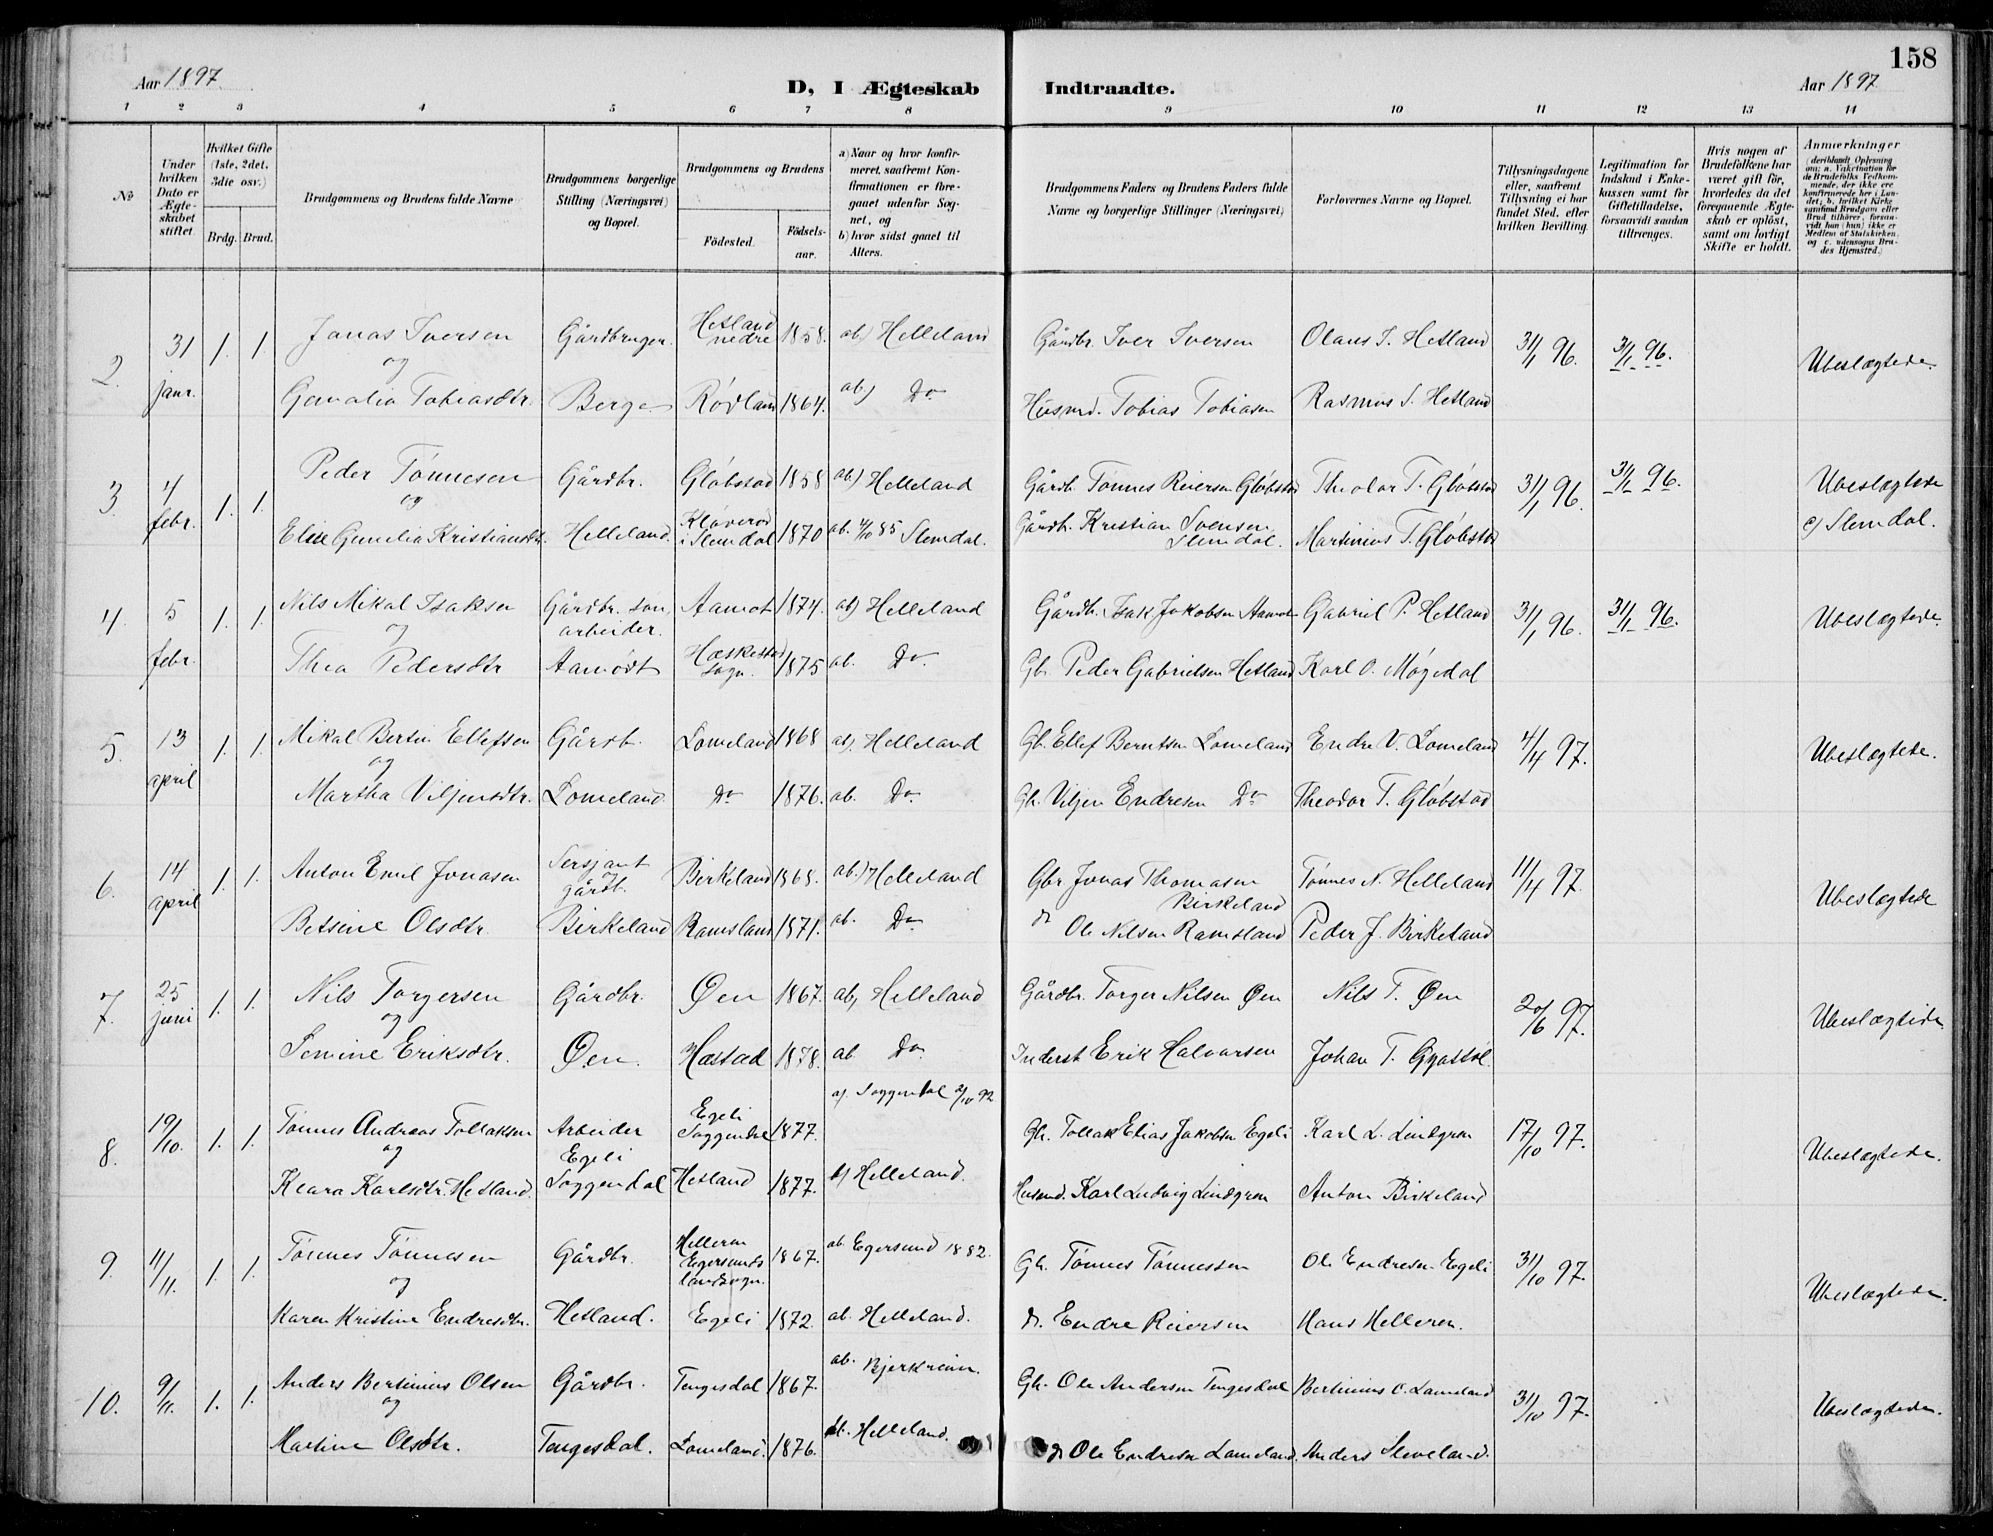 158
Aar 1897
D, I Ægteskab Indtraadte.
Aar 1897
1 2 3 4 5 6 7 8 9 10 11 12 13 14
No
Under hvilken Dato er Ægteskabet stiftet.
Hvilket Gifte (1ste, 2det, 3die osv.)
Brdg. Brud.
Brudgommens og Brudens fulde Navne
Brudgommens borgerlige Stilling (Næringsvei) og Bopæl.
Brudgommens og Brudens
Fødested. Fødselsaar.
a) Naar og hvor konfirmeret, saafremt Konfirmationen er foregaaet udenfor Sognet, og
b) hvor sidst gaaet til Alters.
Brudgommens Faders og Brudens Faders fulde Navne og borgerlige Stillinger (Næringsvei)
Forlovernes Navne og Bopæl.
Tillysningsdagene eller, saafremt Tillysning ei har fundet Sted, efter hvilken Bevilling.
Legitimation for Indskud i Enkekassen samt for Giftetilladelse, forsaavidt saadan tiltrænges.
Hvis nogen af Brudefolkene har været gift før, hvorledes da det foregaaende Ægteskab er opløst, samt om lovligt Skifte er holdt.
Anmærkninger (deriblandt Oplysning om: a. Vakcination for de Brudefolks Vedkommende, der ikke ere konfirmerede her i Landet; b. hvilket Kirkesamfund Brudgom eller Brud tilhører, forsaavidt han (hun) ikke er Medlem af Statskirken, og c. udensogns Brudes Hjemsted.)
2. 31 janr. 1. 1 Jonas Iversen Gårdbruger. Hetland nedre 1858. ab) Helleland Gårdbr. Iver Iversen Olaus S. Hetland 31/1 96. 31/1 96. Ubeslægtede
og
Gemalia Tobiasdtr. Berge Rødland 1864. ab) Do Husmd. Tobias Tobiasen Rasmus S. Hetland
3. 4 febr. 1. 1. Peder Tønnesen Gårdbr. Gløbstad 1858 ab) Helleland Gårdb. Tønnes Reiersen Gløbstad Theodor T. Gløbstad 31/1 96 31/1 96. Ubeslægtede
og
Elise Gemelia Kristiansdtr. Helleland. Kløverod i Slemdal 1870 ab. 4/10 85 Slemdal. Gårdb. Kristian Svensen Slemdal. Martinius T. Gløbstad c) Slemdal.
4. 5 febr. 1. 1. Nils Mikal Isaksen Gårdbr. søn, arbeider. Aamot 1874. ab) Helleland Gårdb. Isak Jakobsen Aamodt Gabriel P. Hetland 31/1 96. 31/1 96. Ubeslægtede.
og
Thea Pedersdtr Aamodt Hæskestad sogn. 1875 ab. Do. Gb. Peder Gabrielsen Hetland Karl O. Møgedal
5. 13 april 1. 1. Mikal Bertin Ellefsen Gårdb. Lomeland 1868 ab, Helleland Gb. Ellef Berntsen Lomeland Endre V. Lomeland 4/4 97. Ubeslægtede.
og
Martha Viljensdtr. Lomeland Do 1876. ab. Do. Gb. Viljen Endresen Do Theodor T. Gløbstad
6. 14 april 1. 1. Anton Emil Jonasen Sersjant og gårdb. Birkeland 1868. ab.) Helleland Gbr Jonas Thomasen Birkeland Tønnes N. Helleland 11/4 97. Ubeslægtede
Betsine Olsdtr. Birkeland Ramsland 1871. ab. Do. do Ole Nilsen Ramsland Peder J. Birkeland
7. 25 juni 1. 1. Nils Torgersen Gårdbr. Øen 1867. ab, Helleland Gårdbr. Torger Nilsen Øen Nils T. Øen 20/6 97. Ubeslægtede
og
Semine Eriksdtr. Øen. Hæstad 1878. ab Do. Inderst Erik Halvorsen Johan T.
8. 19/10. 1. 1. Tønnes Andreas Tollaksen Arbeider Egeli Soggendal 1877. a) Soggendal 2/10 92 Gb. Tollak Elias Jakobsen Egeli Karl L. Lindgren 17/10 97. Ubeslægtede.
og
Klara Karlsdtr. Hetland. Egeli Soggendal Hetland 1877. b) Helleland. Husmd. Karl Ludvig Lindgren Anton Birkeland
9. 11/11. 1. 1. Tønnes Tønnesen Gårdbr. Helleren Egersunds landsogn. 1867. ab. Egersund 1882. Gb. Tønnes Tønnessen Ole Endresen Egeli 31/10 97. Ubeslægtede.
og
Karen Kristine Endresdtr. Hetland. Egeli 1872. ab. Helleland. do. Endre Reiersen Hans Helleren.
10. 9/11. 1. 1. Anders Bertinius Olsen Gårdbr. Tengesdal 1867. ab. Bjerkreim. Gb. Ole Andersen Tengesdal Bertinius O. Lameland 31/10 97. Ubeslægtede.
og
Martine Olsdtr. Tengesdal. Lomeland. 1876. ab. Helleland. do Ole Endresen Lameland. Anders Sleveland.